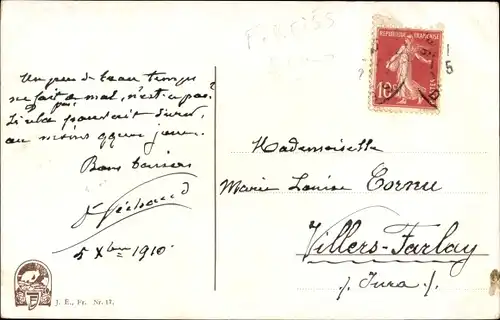 Un peu de beau temps
ne fait pas mal, n'est-ce pas?
Si cela pouvait durer,
au moins qques jours.
Bons baisers
5 Xbre 1910
J. E., Fr. Nr. 17.
REPUBLIQUE FRANÇAISE
10
POSTES
Mademoiselle
Marie Louise Cornu
Villers-Farlay
Jura